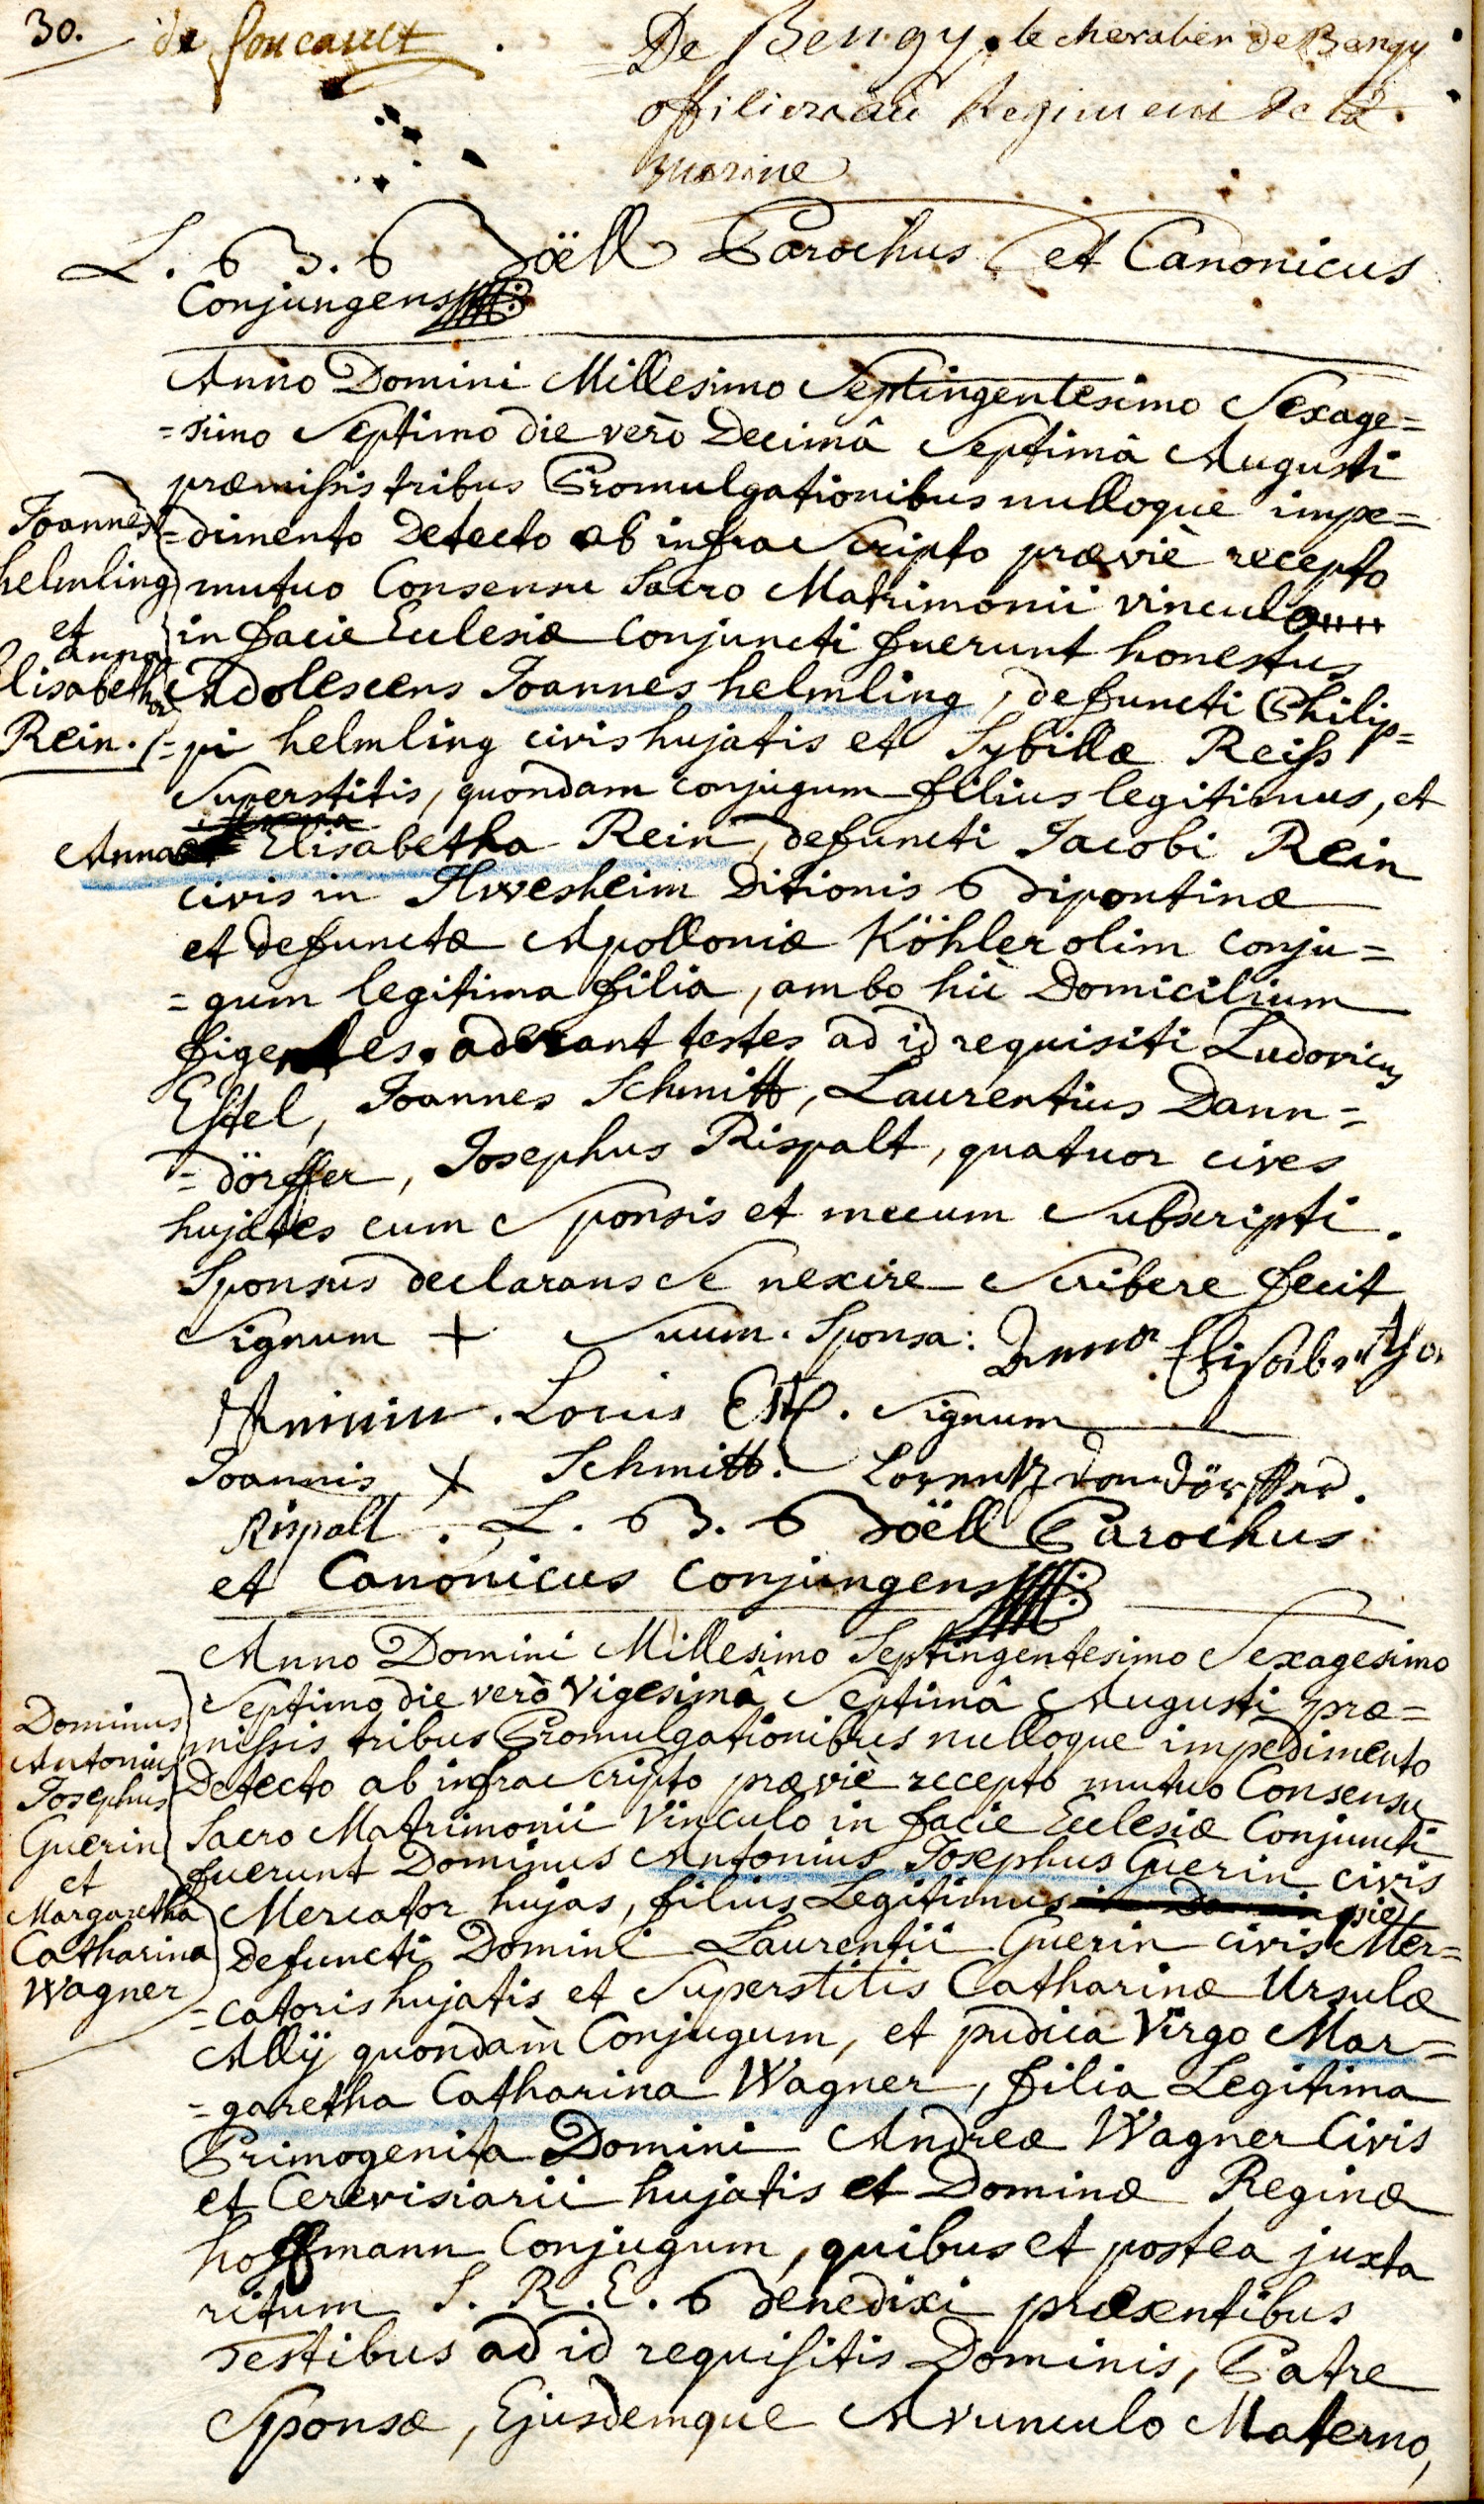 30. de foucault . De Bengy. le chevalier de Bengy
officier au Regiment de la
marine
L. B. Böell Parochus et Canonicus
Conjungens
Anno Domini Millesimo Septingentesimo Sexage=
=simo Septimo die verò Decimâ Septimâ Augusti
præmissis tribus Promulgationibus nulloque impe=
=dimento Detecto ab infra Scripto præviè recepto
mutuo Consensu Sacro Matrimonii vinculo
in facie Eclesiæ conjuncti fuerunt honestus
Adolescens Joannes helmling, defuncti Philip=
=pi helmling civis hujatis et Sybillæ Reiss
Superstitis, quondam conjugum filius legitimus, et
Anna Elisabetha Rein, defuncti Jacobi Rein
civis in Ditionis Bipontinæ
et defunctæ Apolloniæ Köhler olim conju=
=gum legitima filia, ambo hìc Domicilium
figentes. aderant testes ad id requisiti Ludovicus
Estel, Joannes Schmitt, Laurentius Dann=
=dörffer, Josephus Rispalt, quatuor cives
hujates cum Sponsis et mecum Subscripti.
Sponsus declarans se nescire Scribere fecit
Signum + Suum. Sponsa: Anna Elisabetha
Louis Estel. Signum
Joannis + Schmitt. Lorentz dandörffer.
Rispall. L. B. Böell Parochus
et Canonicus Conjungens
Joannes
helmling
et
anna
Elisabetha
Rein.
Anno Domini Millesimo Septingentesimo Sexagesimo
Septimo die verò Vigesimâ Septimâ Augusti præ=
missis tribus Promulgationibus nulloque impedimento
Detecto ab infra Scripto præviè recepto mutuo Consensu
Sacro Matrimonii Vinculo in facie Eclesiæ Conjuncti
fuerunt Dominus Antonius Josephus Guerin civis
Mercator hujas, filius Legitimus piè
Defuncti Domini Laurentii Guerin civis Mer=
=catoris hujatis et Superstitis Catharinæ Ursulæ
Allÿ quondam Conjugum, et pudica Virgo Mar=
=garetha Catharina Wagner, filia Legitima
Primogenita Domini Andreæ Wagner Civis
et Cerevisiarii hujatis et Dominæ Reginæ
hoffmann Conjugum, quibus et postea juxta
ritum S. R. E. Benedixi præsentibus
Testibus ad id requisitis Dominis, Patre
Sponsæ, Ejusdemque Avunculo Materno,
Dominus
Antonius
Josephus
Guerin
et
Margaretha
Catharina
Wagner